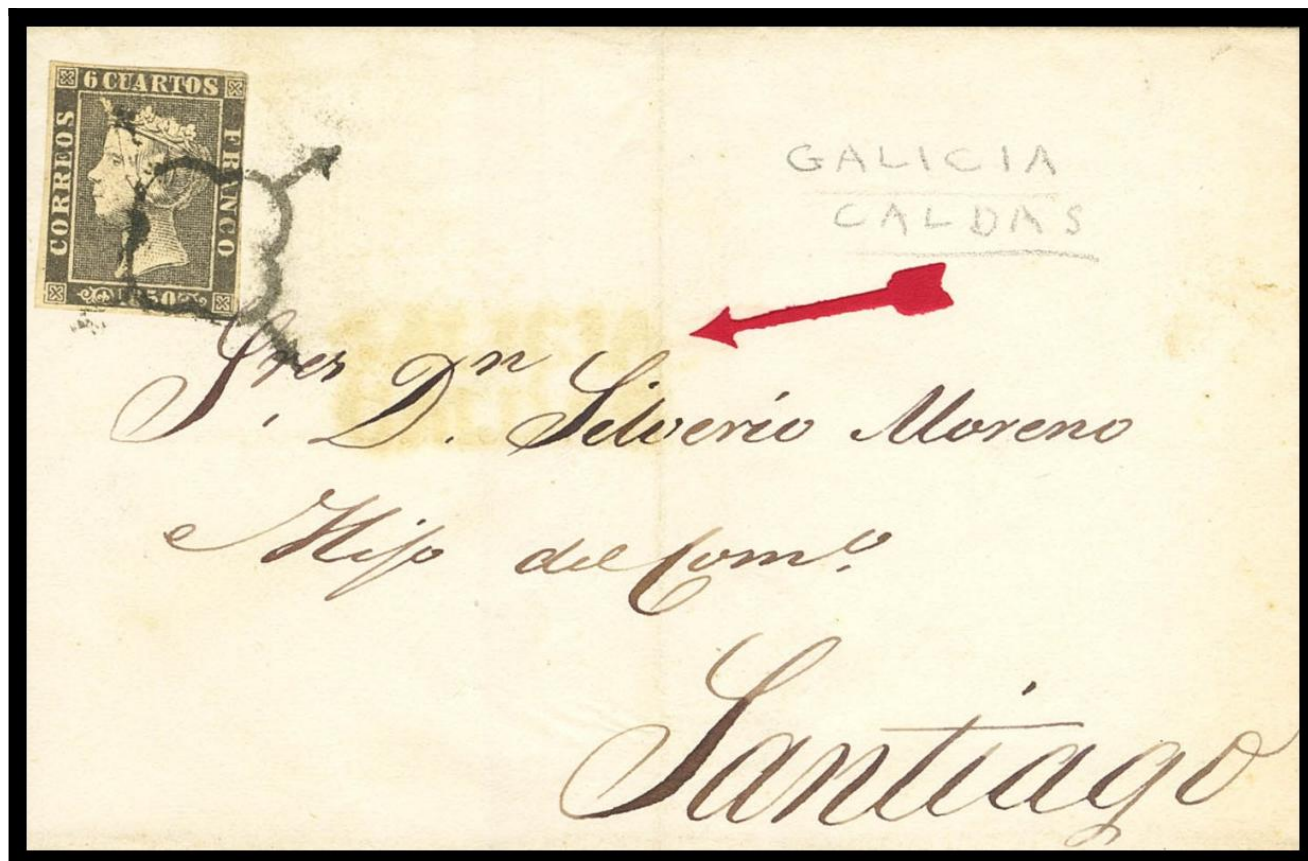 6 CUARTOS
CORREOS
FRANCO
1850
GALICIA
CALDAS
Sres
S. D.n Silverio Moreno
e Hijo del Com.o
Santiago